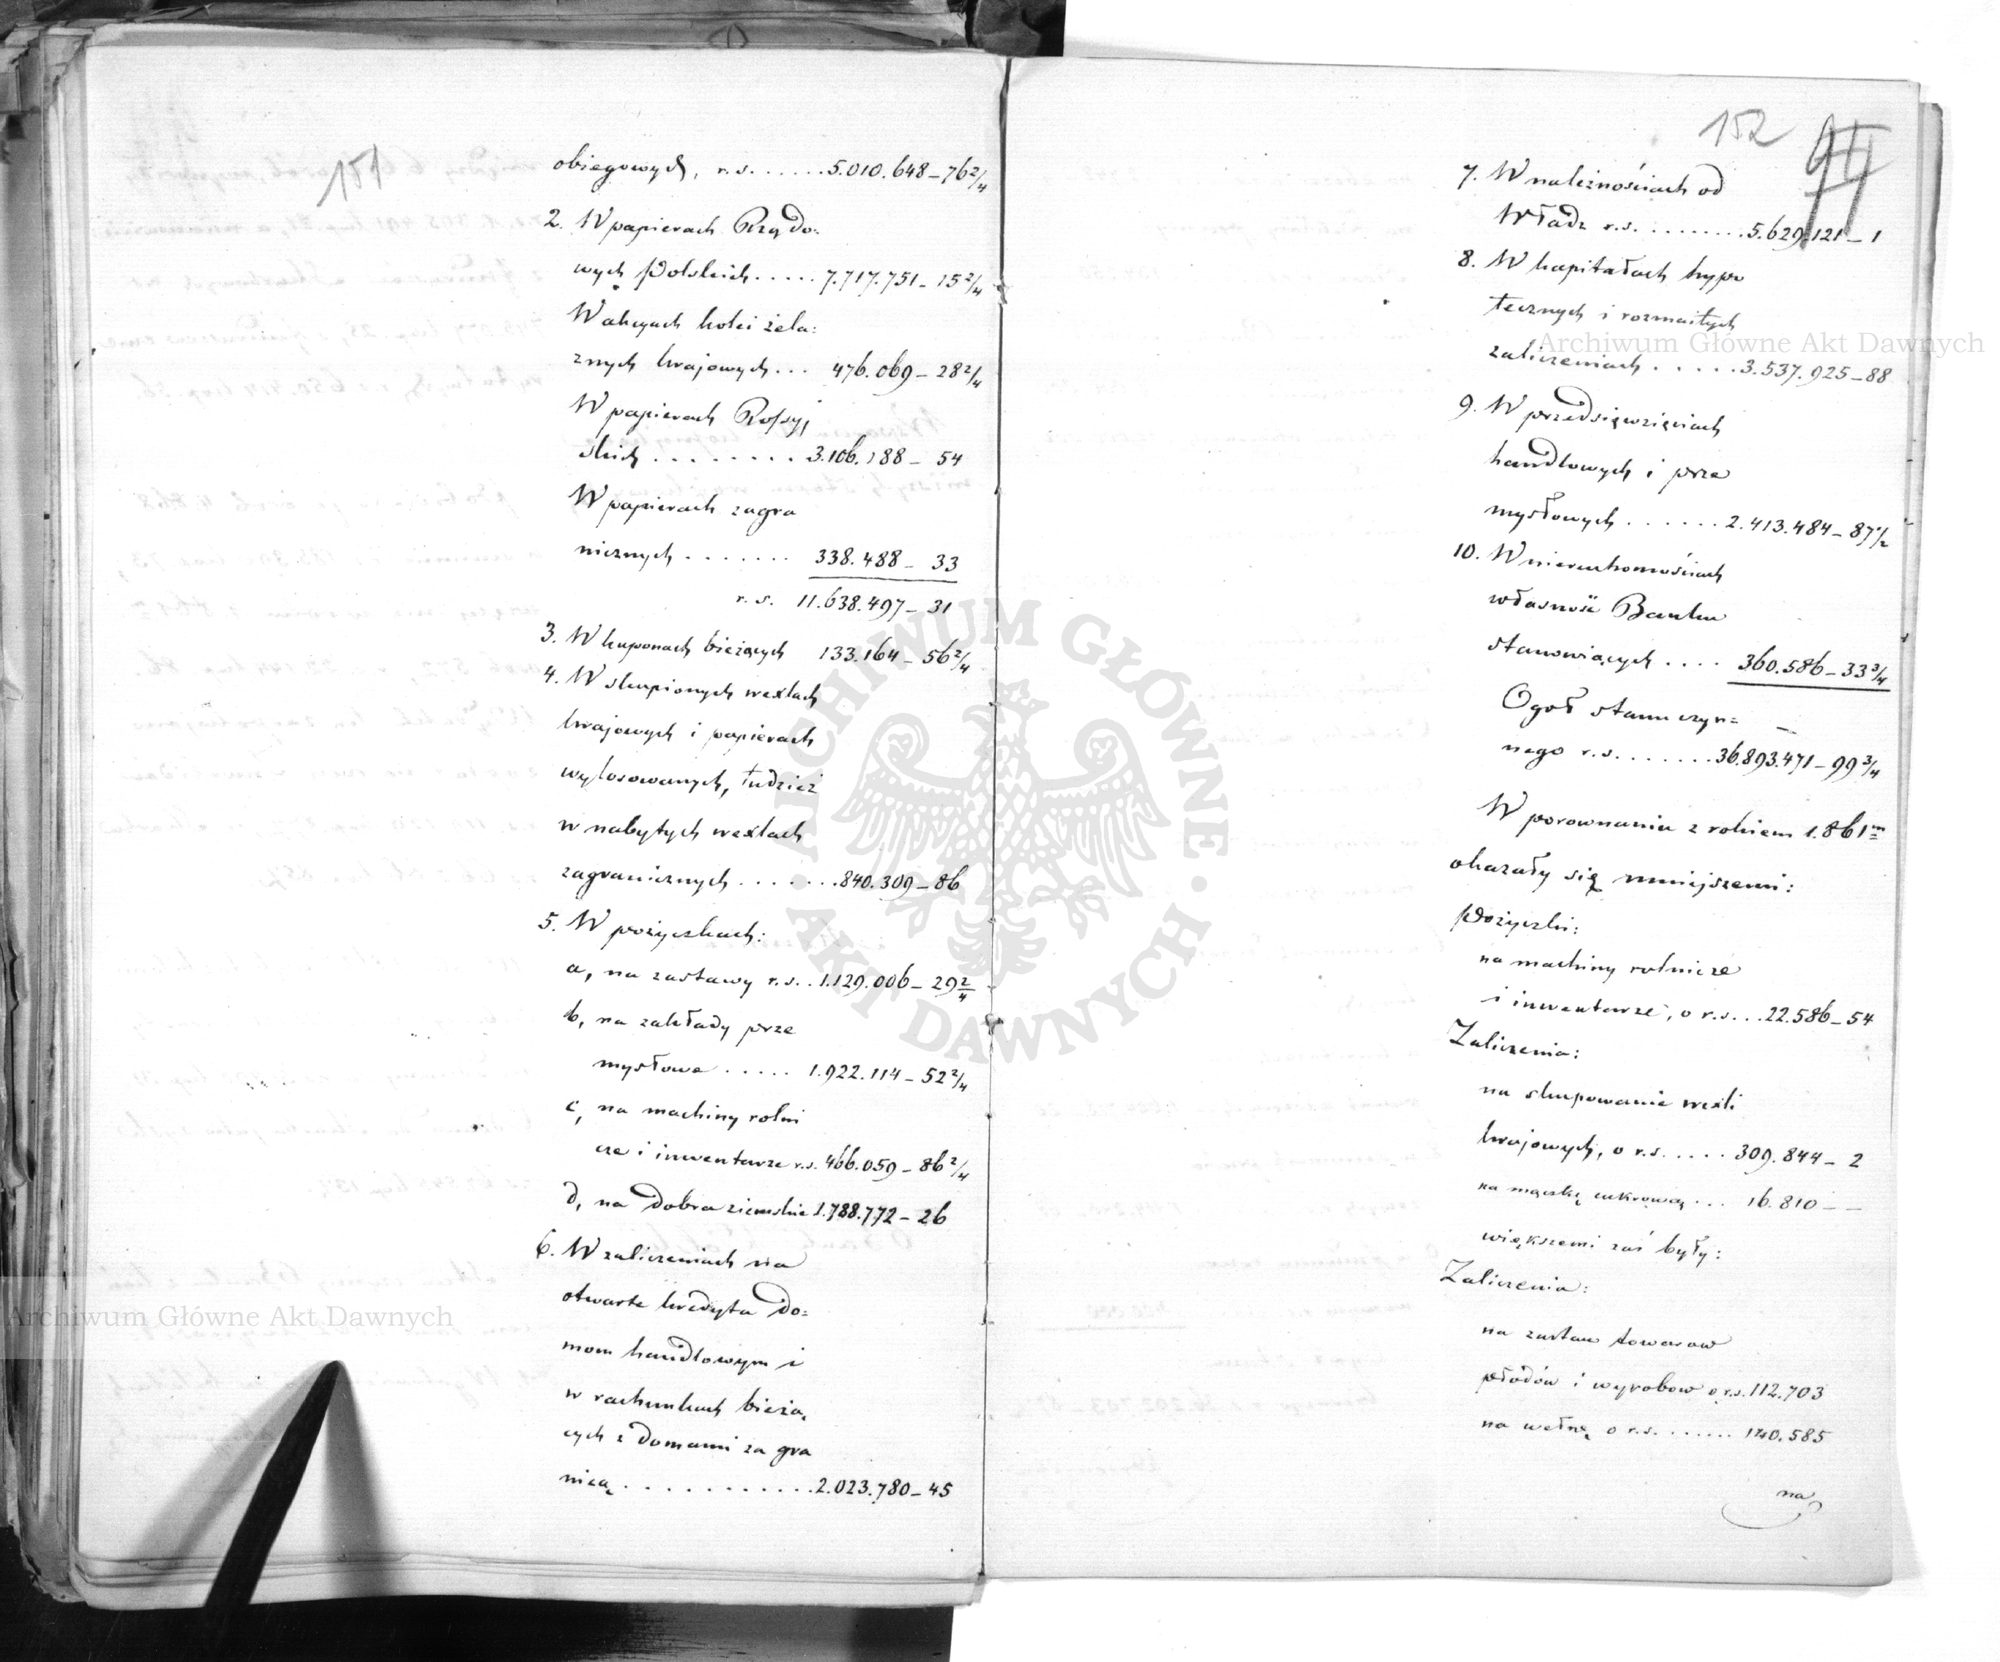 151
obiegowych, r.s. ...... 5.010.648 – 76 2/4
2. W papierach Rządo=
wych Polskich ..... 7.717.751 – 15 2/4
W akcyach kolei żela=
znych krajowych ... 476.069 – 28 2/4
W papierach Rossyj
skich ........ 3.106.188 – 54
W papierach zagra
nicznych ....... 338.488 – 33
r.s. 11.638.497 – 31
3. W kuponach bieżących 133.164 – 56 2/4
4. W skupionych wexlach
krajowych i papierach
wylosowanych, tudzież
w nabytych wexlach
zagranicznych ....... 840.309 – 86
5. W pożyczkach:
a, na zastawy r.s. .. 1.129.006 – 29 2/4
b, na zakłady prze
mysłowe ..... 1.922.114 – 52 2/4
c, na machiny rolni
cze i inwentarze r.s. 466.059 – 86 2/4
d, na dobra ziemskie 1.788.772 – 26
6. W zaliczeniach na
otwarte kredyta do=
mom handlowym i
w rachunkach bieżą,
cych z domami za gra
nicą ............ 2.023.780 – 45
152
7. W należnościach od
Władz r.s. ........ 5.629.121 – 1
8. W kapitałach hypo
tecznych i rozmaitych
zaliczeniach ..... 3.537.925 – 88
9. W przedsięwzięciach
handlowych i prze
mysłowych ...... 2.413.484 – 87 1/2
10. W nieruchomościach
własność Banku
stanowiących .... 360.586 – 33 3/4
Ogół stanu czyn=
nego r.s. ....... 36.893.471 – 99 3/4
W porownaniu z rokiem 1.861m
okazały się mniejszemi:
Pożyczki:
na machiny rolnicze
i inwentarze, o r.s. ... 22.586 – 54
Zaliczenia:
na skupowanie wexli
krajowych, o r.s. ..... 309.844 – 2
na mączkę cukrową ... 16.810 – –
większemi zaś były:
Zaliczenia:
na zastaw towarow
płodów i wyrobow o r.s. 112.703
na wełnę o r.s. ...... 140.585
na
Archiwum Główne Akt Dawnych
Archiwum Główne Akt Dawnych
ARCHIWUM GŁÓWNE · AKT DAWNYCH ·